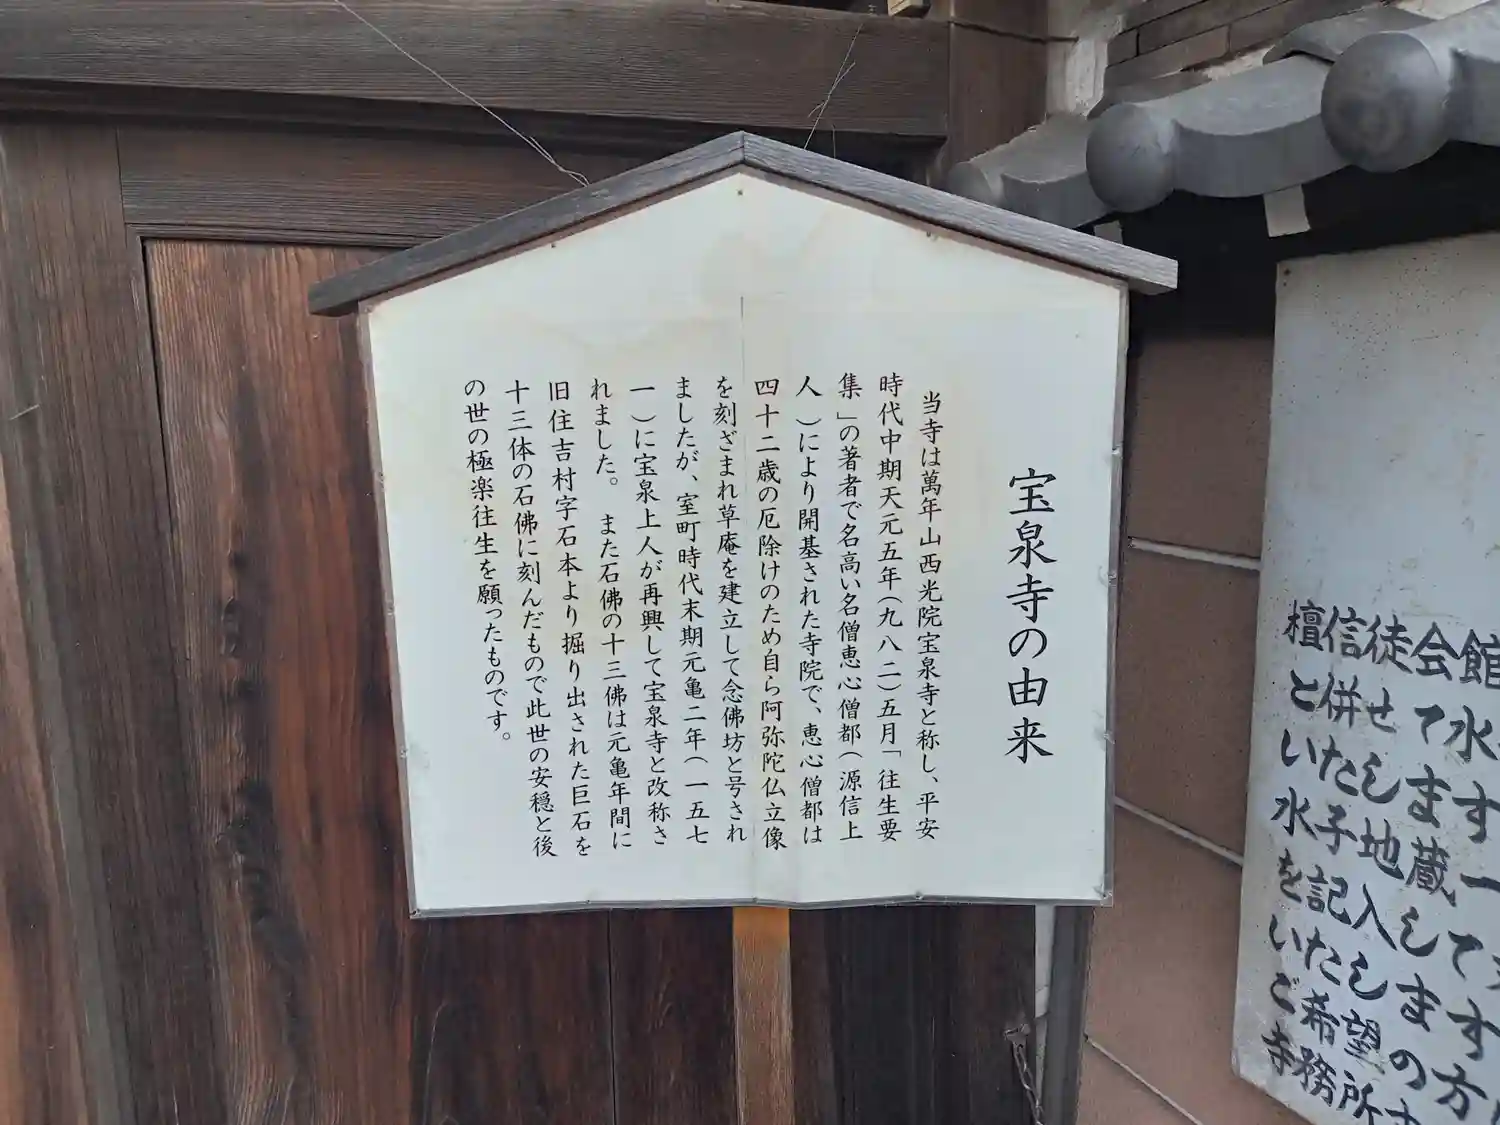 宝泉寺の由来
当寺は萬年山西光院宝泉寺と称し、平安
時代中期天元五年(九八二)五月「往生要
集」の著者で名高い名僧恵心僧都(源信上
人)により開基された寺院で、恵心僧都は
四十二歳の厄除けのため自ら阿弥陀仏立像
を刻ざまれ草庵を建立して念佛坊と号され
ましたが、室町時代末期元亀二年(一五七
一)に宝泉上人が再興して宝泉寺と改称さ
れました。 また石佛の十三佛は元亀年間に
旧住吉村字石本より掘り出された巨石を
十三体の石佛に刻んだもので此世の安穏と後
の世の極楽往生を願ったものです。
檀信徒会館
と併せて水
いたします
水子地蔵一
を記入して
いたします
ご希望の方
寺務所